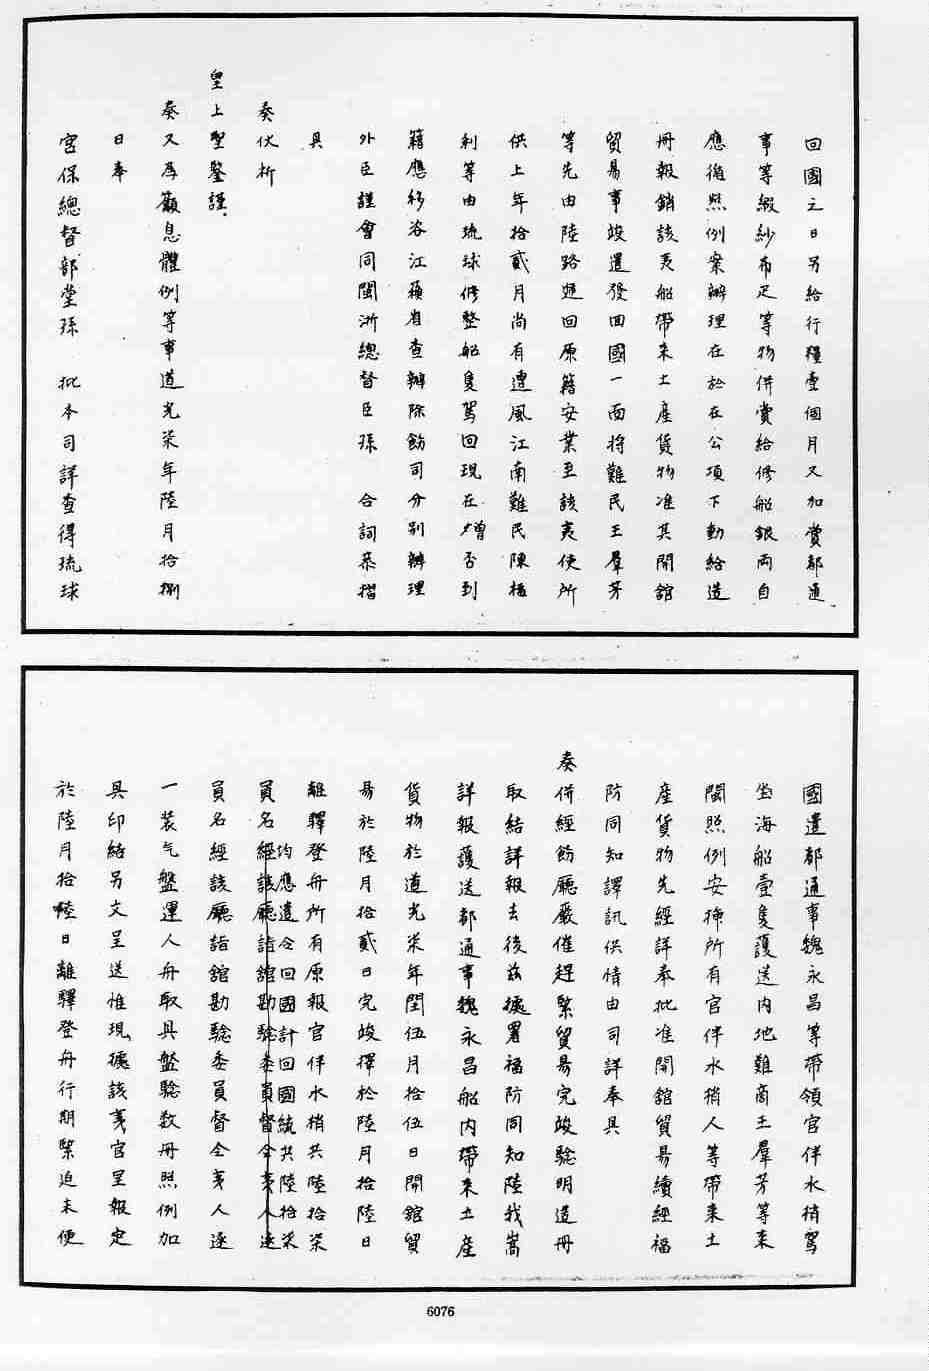 回國之日另給行糧壹個月又加賞都通
事等緞紗布疋等物併賞給修船銀兩自
應循照例案辦理在於在公項下動給造
冊報銷該夷船帶來土產貨物准其開舘
貿易事竣遣發回國一面將難民王羣芳
等先由陸路遞回原籍安業至該夷使所
供上年拾貳月尚有遭風江南難民陳
利等由琉球修整船隻駕回現在曾否到
籍應移咨江蘓省查辦除飭司分別辦理
外臣謹會同閩浙總督臣孫 合詞恭摺
具
奏伏祈
皇上聖鑒謹
奏又為籲息體例等事道光柒年陸月拾捌
日奉
宮保總督部堂孫 批本司詳查得琉球
國遣都通事魏永昌等帶領官伴水梢駕
坐海船壹隻護送內地難商王羣芳等來
閩照例安揷所有官伴水梢人等帶來土
產貨物先經詳奉批准開舘貿易續經福
防同知譯訊供情由司詳奉具
奏併經飭廳嚴催趕緊貿易完竣驗明造冊
取結詳報去後茲據署福防同知陸我嵩
詳報護送都通事魏永昌船內帶來土產
貨物於道光柒年閏伍月拾伍日開舘貿
易於陸月拾貳日完竣擇於陸月拾陸日
離驛登舟所有原報官伴水梢共陸拾柒
員名均應遣令回國計回國統共陸拾柒
員名經該廳詣舘勘驗委員督令夷人逐
員名經該廳詣舘勘驗委員督令夷人逐
一裝気盤運人舟取具盤驗数冊照例加
具印結另文呈送惟現據該夷官呈報定
於陸月拾陸日離驛登舟行期緊迫未便
6076